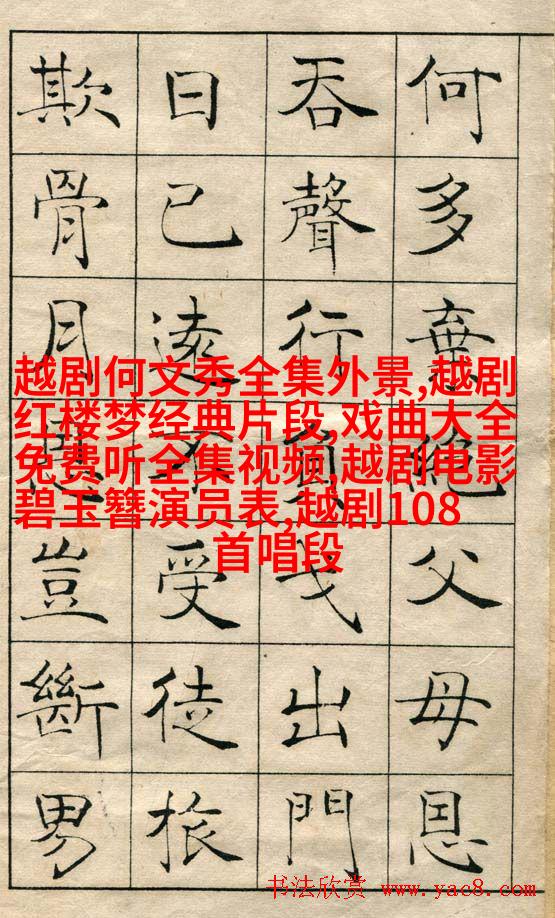 何多棄絶父母恩
吞聲行負戈出門
日已遠不受徒旅
欺骨月恩豈斷男
越剧何文秀全集外景,越剧
红楼梦经典片段,戏曲大全
免费听全集视频,越剧电影
碧玉簪演员表,越剧108
首唱段
书法欣赏 www.yac8.com